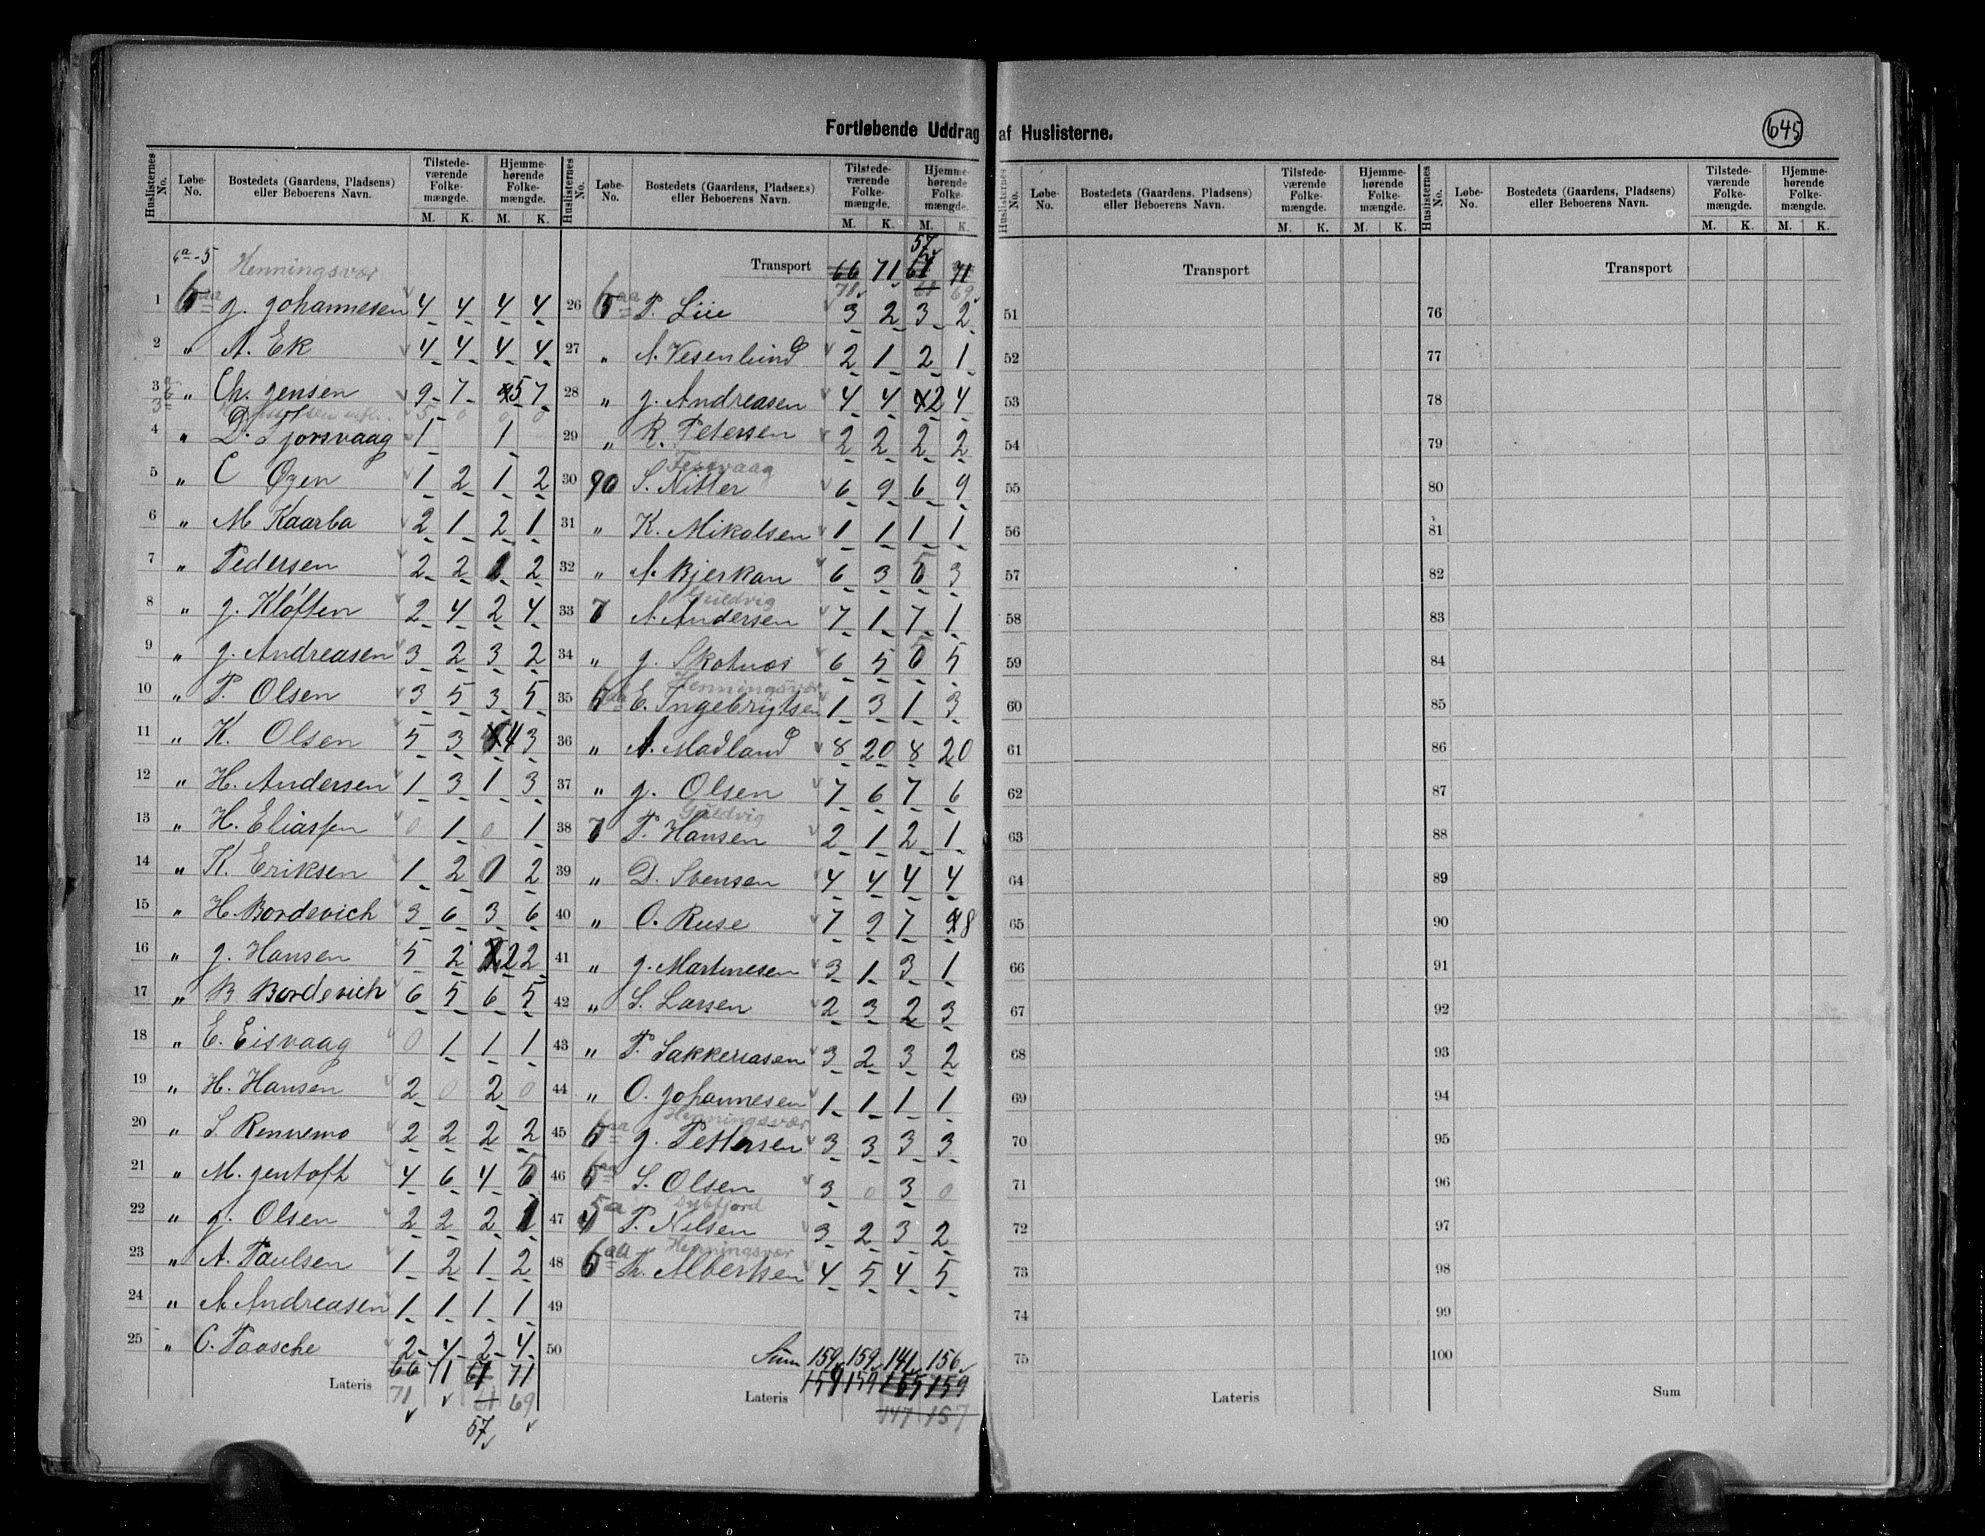 Fortløbende Uddrag af Huslisterne.
645
Huslisternes No. Løbe-No. Bostedets (Gaardens, Pladsens) eller Beboerens Navn. Tilstedeværende Folkemængde. M. K. Hjemmehørende Folkemængde. M. K.
6a-5 Henningsvær
1 6aa J. Johannesen 4 4 4 4
2 " A. Ek 4 4 4 4
3 " Chr. Jensen 9 7 5 7
4 " D. Fjorsvaag 1 1
5 " C Özen 1 2 1 2
6 " M Kaarbø 2 1 2 1
7 " Pedersen 2 2 1 2
8 " J. Kløften 2 4 2 4
9 " J. Andreasen 3 2 3 2
10 " P. Olsen 3 5 3 5
11 " K. Olsen 5 3 4 3
12 " H. Andersen 1 3 1 3
13 " H. Eliassen 0 1 0 1
14 " K. Eriksen 1 2 0 2
15 " H. Bordevich 3 6 3 6
16 " J. Hansen 5 2 2 2
17 " B Bordevich 6 5 6 5
18 " E. Eisvaag 0 1 1 1
19 " H. Hansen 2 0 2 0
20 " S. Rennemo 2 2 2 2
21 " M. Jentoft 4 6 4 5
22 " J. Olsen 2 2 2 1
23 " A. Paulsen 1 2 1 2
24 " A Andreasen 1 1 1 1
25 " C. Paasche 2 4 2 4
66 71 61 71
Lateris 71 61 69
57
Huslisternes No. Løbe-No. Bostedets (Gaardens, Pladsens) eller Beboerens Navn. Tilstedeværende Folkemængde. M. K. Hjemmehørende Folkemængde. M. K.
57
Transport 66 71 61 71
71 61 69
26 6aa P. Lie 3 2 3 2
27 " A. Vesenlund 2 1 2 1
28 " J. Andreasen 4 4 2 4
29 " R. Petersen 2 2 2 2
Festvaag
30 90 S. Nitter 6 9 6 9
31 " K. Mikalsen 1 1 1 1
32 " A. Bjerkan 6 3 5 3
Guldvig
33 7 A. Andersen 7 1 7 1
34 " J. Skotnæs 6 5 5 5
Henningsvær
35 6aa E. Ingebrigtsen 1 3 1 3
36 " A. Madland 8 20 8 20
37 " J. Olsen 7 6 7 6
Guldvig
38 7 P. Hansen 2 1 2 1
39 " D. Svensen 4 4 4 4
40 " O. Ruse 7 9 7 8
41 " J. Martinesen 3 1 3 1
42 " S. Larsen 2 3 2 3
43 " P. Sakkeriasen 3 2 3 2
44 " O. Johannesen 1 1 1 1
Henningsvær
45 6aa J. Pettersen 3 3 3 3
46 6aa S. Olsen 3 0 3 0
5a Dybfjord
47 P. Nilsen 3 2 3 2
Henningsvær
48 6aa Albertsen 4 5 4 5
49
50
Sum 159 159 141 156
Lateris 159 159 155 159
147 157
Huslisternes No. Løbe-No. Bostedets (Gaardens, Pladsens) eller Beboerens Navn. Tilstedeværende Folkemængde. M. K. Hjemmehørende Folkemængde. M. K.
Transport
51
52
53
54
55
56
57
58
59
60
61
62
63
64
65
66
67
68
69
70
71
72
73
74
75
Lateris
Huslisternes No. Løbe-No. Bostedets (Gaardens, Pladsens) eller Beboerens Navn. Tilstedeværende Folkemængde. M. K. Hjemmehørende Folkemængde. M. K.
Transport
76
77
78
79
80
81
82
83
84
85
86
87
88
89
90
91
92
93
94
95
96
97
98
99
100
Sum